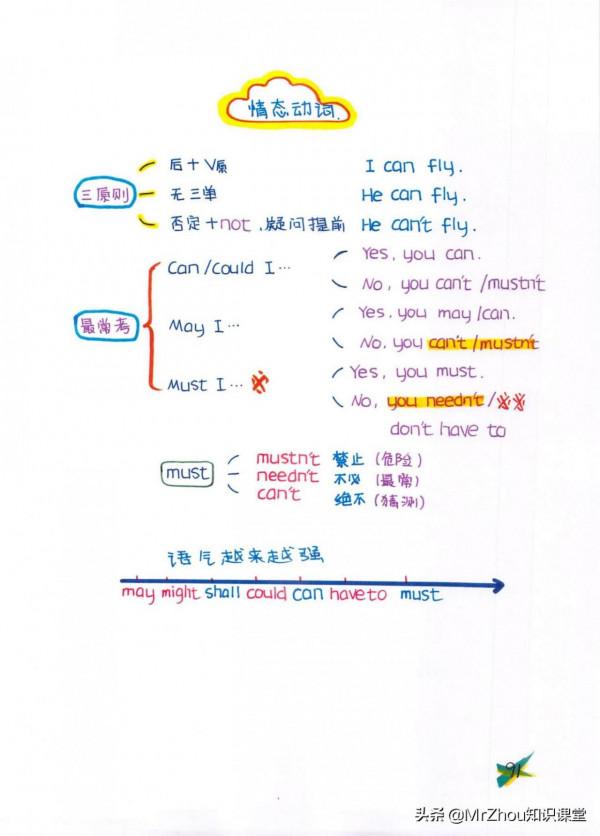 情态动词.
三原则
后+V原 I can fly.
无三单 He can fly.
否定+not,疑问提前 He can't fly.
最常考
Can/could I… Yes, you can.
No, you can't/mustn't
May I… Yes, you may/can.
No, you can't/mustn't
Must I… Yes, you must.
No, you needn't/
don't have to
must
mustn't 禁止(危险)
needn't 不必(最常)
can't 绝不(猜测)
语气越来越强
may might shall could can have to must
91
头条 @MrZhou知识课堂